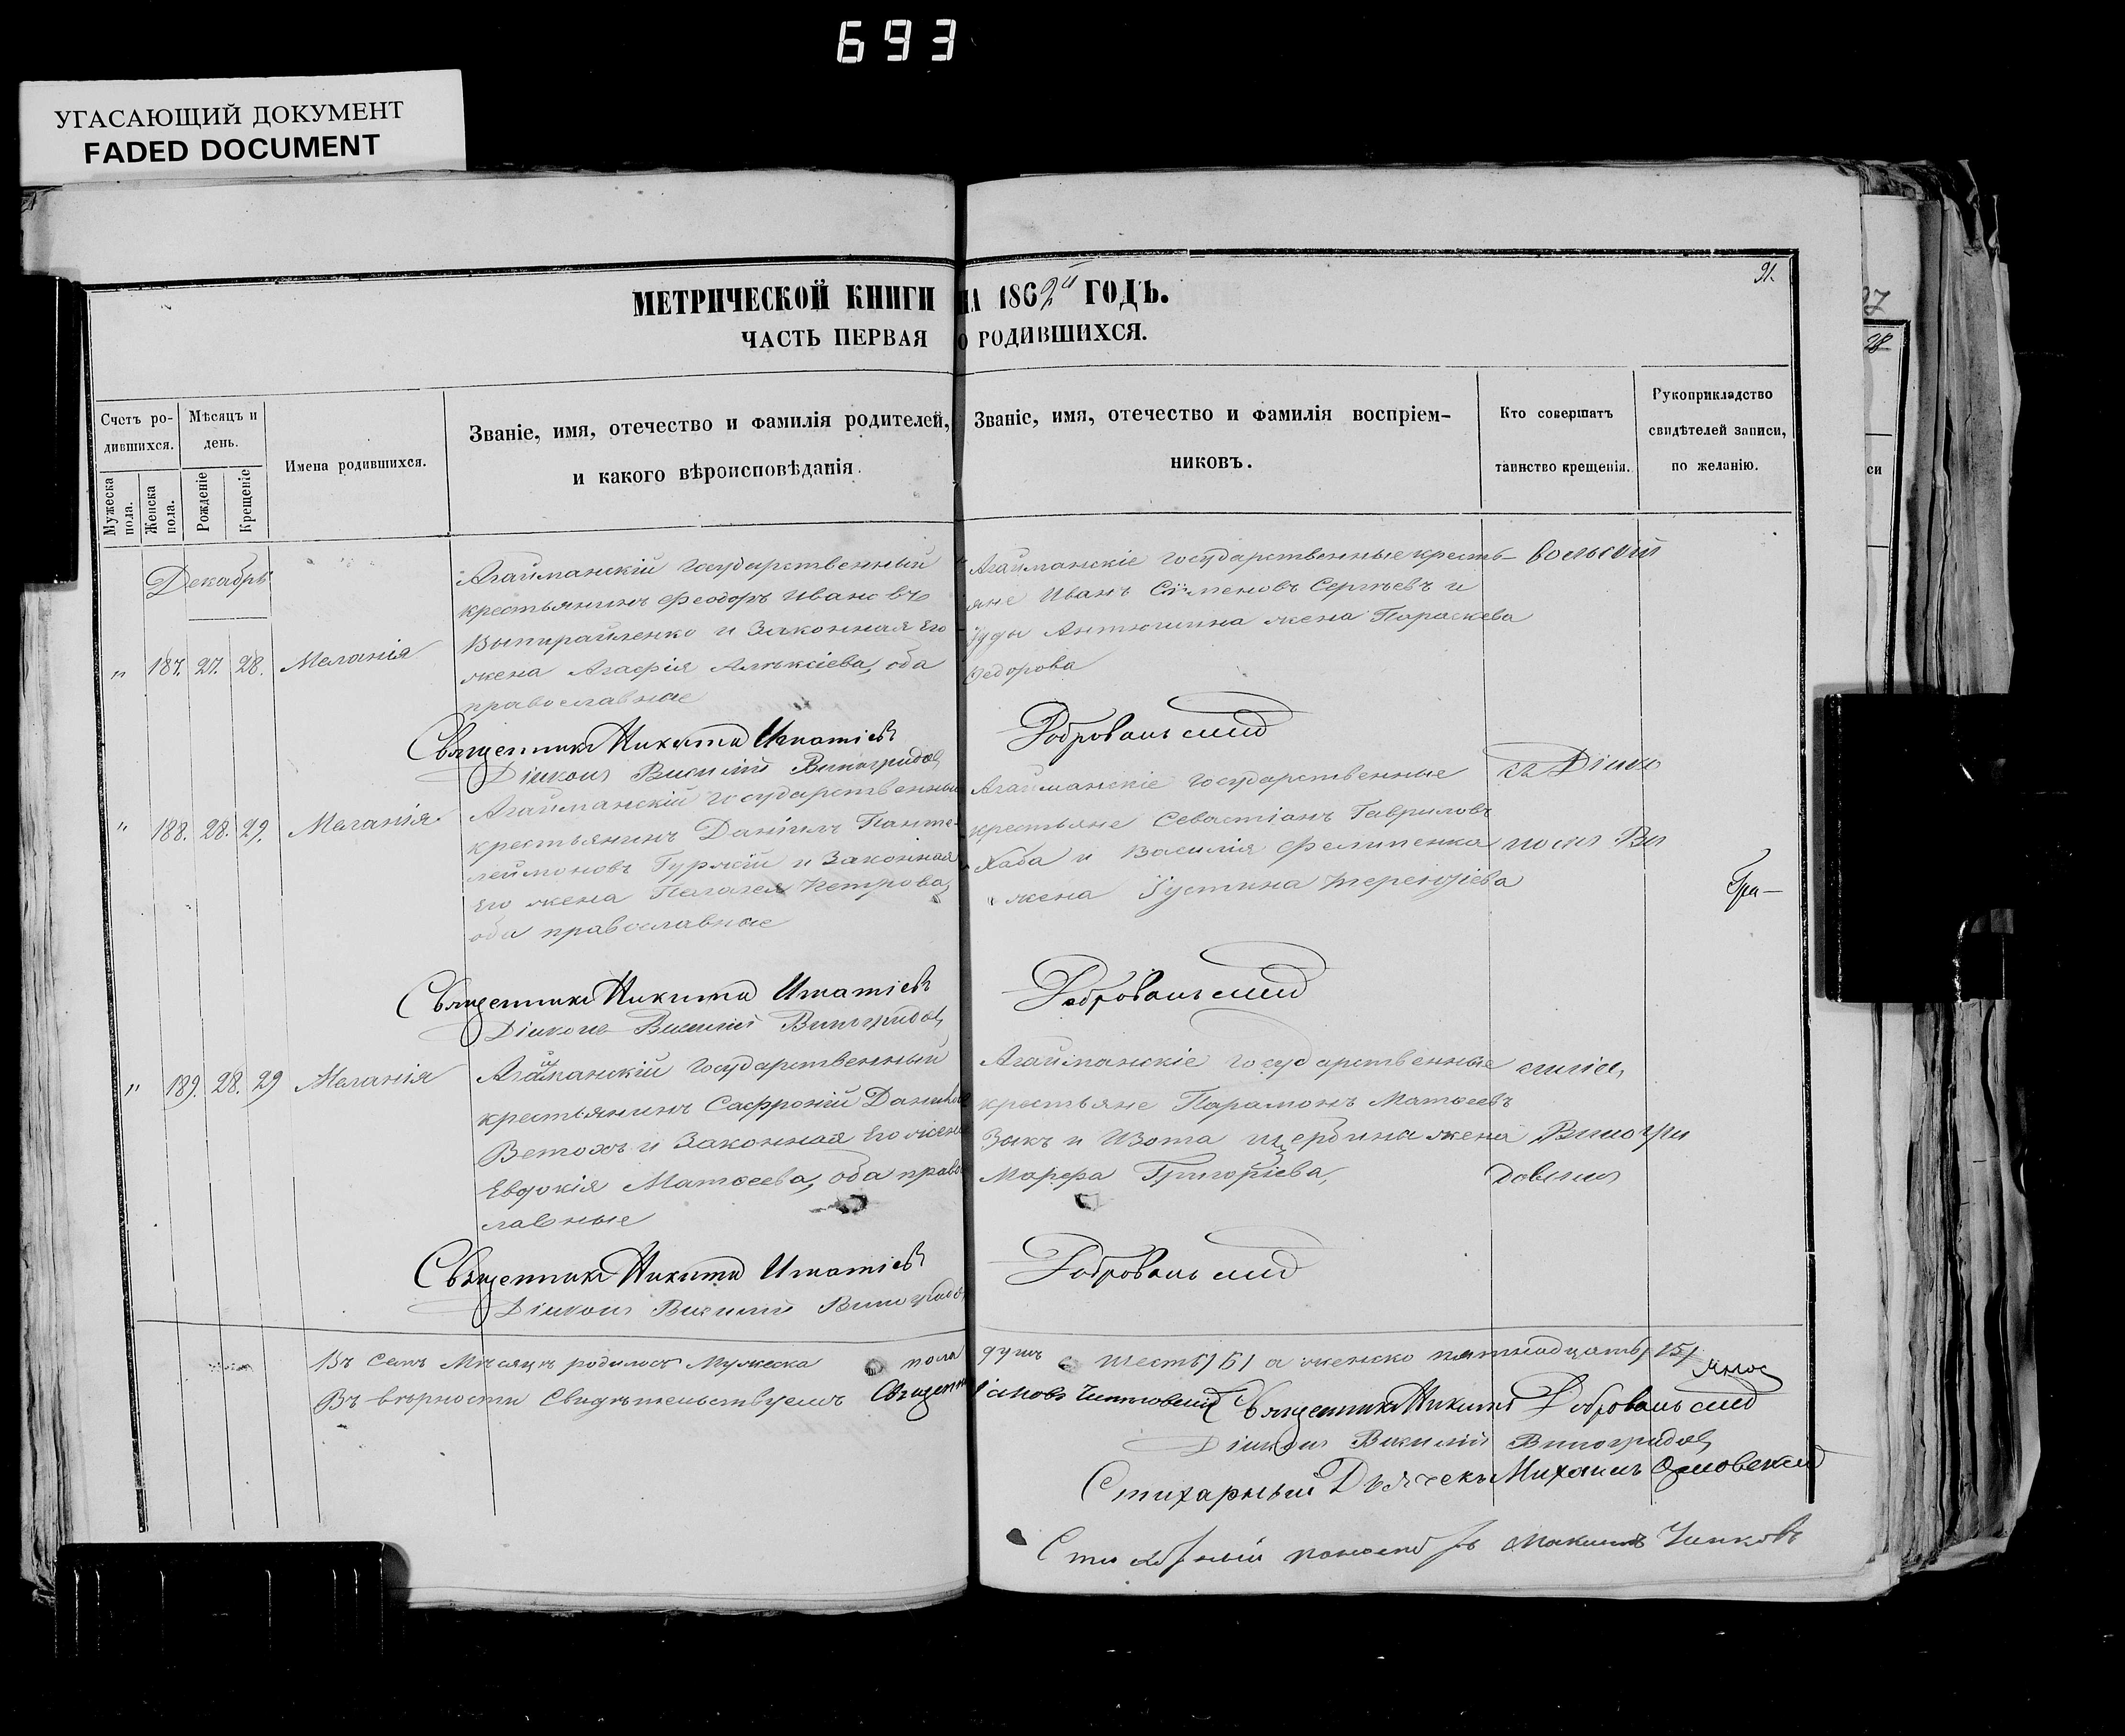 693
УГАСАЮЩИЙ ДОКУМЕНТ
FADED DOCUMENT
91.
МЕТРИЧЕСКОЙ КНИГИ НА 1862й ГОДЪ.
ЧАСТЬ ПЕРВАЯ О РОДИВШИХСЯ.
Счетъ ро-
дившихся.
Мужеска
пола.
Женска
пола.
Мѣсяцъ и
день.
Рожденіе
Крещеніе
Имена родившихся.
Званіе, имя, отечество и фамилія родителей,
и какого вѣроисповѣданія.
Званіе, имя, отечество и фамилія воспріем-
никовъ.
Кто совершатъ
таинство крещенія.
Рукоприкладство
свидѣтелей записи,
по желанію.
Декабрь
" 187. 27. 28. Меланія
Агайманскій государственный
крестьянинъ Феодоръ Ивановъ
и Законная Его
жена Агафія Алексіева, оба
православные
Агайманскіе государственные кресть-
яне Иванъ Сѵменовъ Сергѣевъ и
Іуды Антюшина жена Параскева
Федорова
вольскій
Священникъ Никита Игнатіевъ
Добровольскій
Діаконъ Василій Виноградовъ
" 188. 28. 29. Меланія
Агайманскій государственный
крестьянинъ Даніилъ Панте-
леймоновъ Гуржій и Законная
Его жена Пелагея Петрова,
оба православные
Агайманскіе государственные
крестьяне Севастіанъ Гавриловъ
Хаба и Василія Филипенка
жена Іустина Терентіева
съ Діако
номъ Ва
Священникъ Никита Игнатіевъ
Добровольскій
Діаконъ Василій Виноградовъ
" 189. 28. 29 Меланія
Агайманскій государственный
крестьянинъ Сафроній Даниловъ
Ветохъ и Законная Его жена
Евдокія Матѳеева, оба право
славные
Агайманскіе государственные
крестьяне Парамонъ Матѳеевъ
Зыкъ и Изота Щербина жена
Марфа Григоріева,
силіемъ
Виногра
довымъ
Священникъ Никита Игнатіевъ
Добровольскій
Діаконъ Василій Виноградовъ
Въ семъ Мѣсяцѣ родилось Мужеска пола душъ шесть) 6) а женско пятнадцать) 15)
Въ вѣрности Свидѣтельствуемъ Священникъ Іаковъ
Священникъ Никита Добровольскій
Діаконъ Василій Виноградовъ
Стихарный Дьячекъ Михаилъ Орловскій
Стихарный пономарь